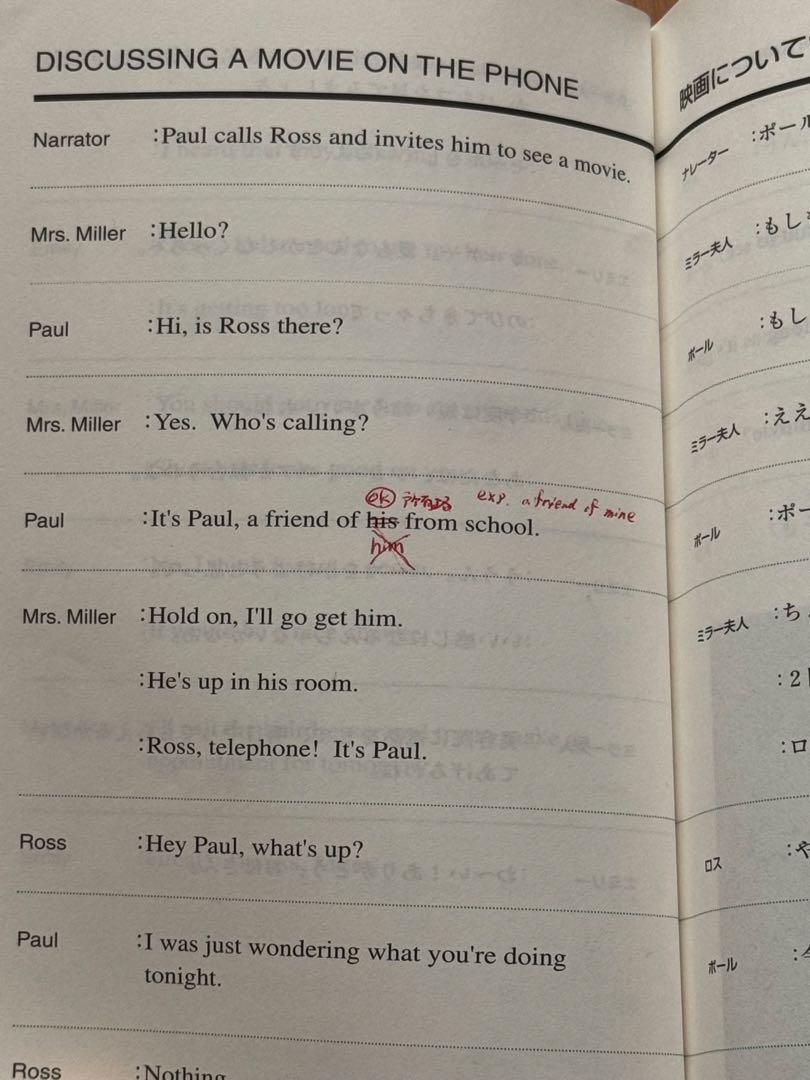 DISCUSSING A MOVIE ON THE PHONE
Narrator :Paul calls Ross and invites him to see a movie.
Mrs. Miller :Hello?
Paul :Hi, is Ross there?
Mrs. Miller :Yes. Who's calling?
ok 所有格 exp. a friend of mine
Paul :It's Paul, a friend of his from school.
him
Mrs. Miller :Hold on, I'll go get him.
:He's up in his room.
:Ross, telephone! It's Paul.
Ross :Hey Paul, what's up?
Paul :I was just wondering what you're doing
tonight.
Ross :Nothing
映画について
ナレーター :ポール
ミラー夫人 :もし
ポール :もし
ミラー夫人 :ええ
ポール :ポー
ミラー夫人 :ち
:2
:ロ
ロス :や
ポール